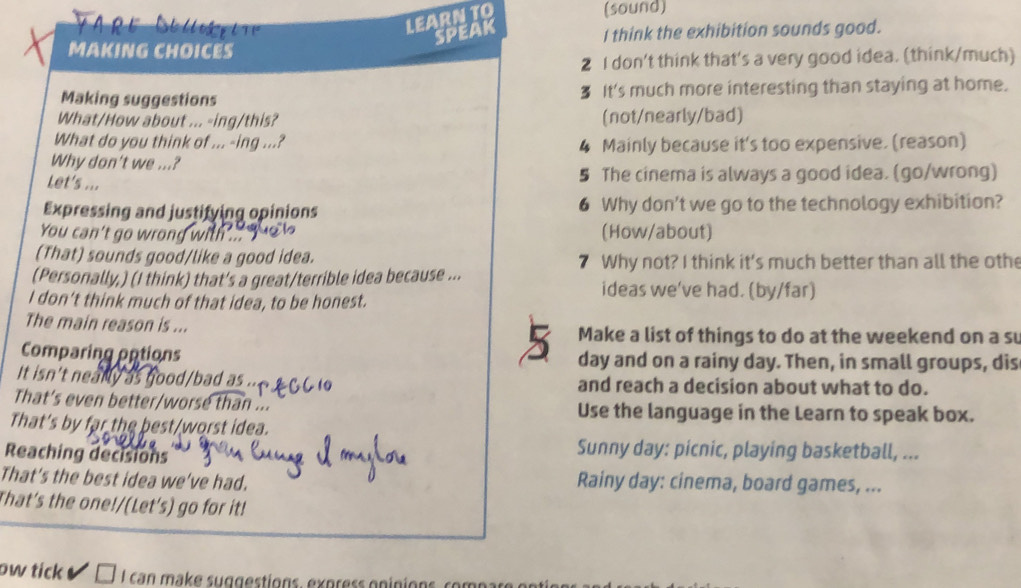 FARE
LEARN TO
SPEAK
MAKING CHOICES
Making suggestions
What/How about ... -ing/this?
What do you think of ... -ing ...?
Why don't we ...?
Let's ...
Expressing and justifying opinions
You can't go wrong with ...
(That) sounds good/like a good idea.
(Personally,) (I think) that's a great/terrible idea because ...
I don't think much of that idea, to be honest.
The main reason is ...
Comparing options
It isn't nearly as good/bad as ...
That's even better/worse than ...
That's by far the best/worst idea.
Reaching decisions
That's the best idea we've had.
That's the one!/(Let's) go for it!
(sound)
I think the exhibition sounds good.
2 I don't think that's a very good idea. (think/much)
3 It's much more interesting than staying at home.
(not/nearly/bad)
4 Mainly because it's too expensive. (reason)
5 The cinema is always a good idea. (go/wrong)
6 Why don't we go to the technology exhibition?
(How/about)
7 Why not? I think it's much better than all the othe
ideas we've had. (by/far)
5 Make a list of things to do at the weekend on a su
day and on a rainy day. Then, in small groups, dis
and reach a decision about what to do.
Use the language in the Learn to speak box.
Sunny day: picnic, playing basketball, ...
Rainy day: cinema, board games, ...
ow tick ✔ □ I can make suggestions, express opinions,